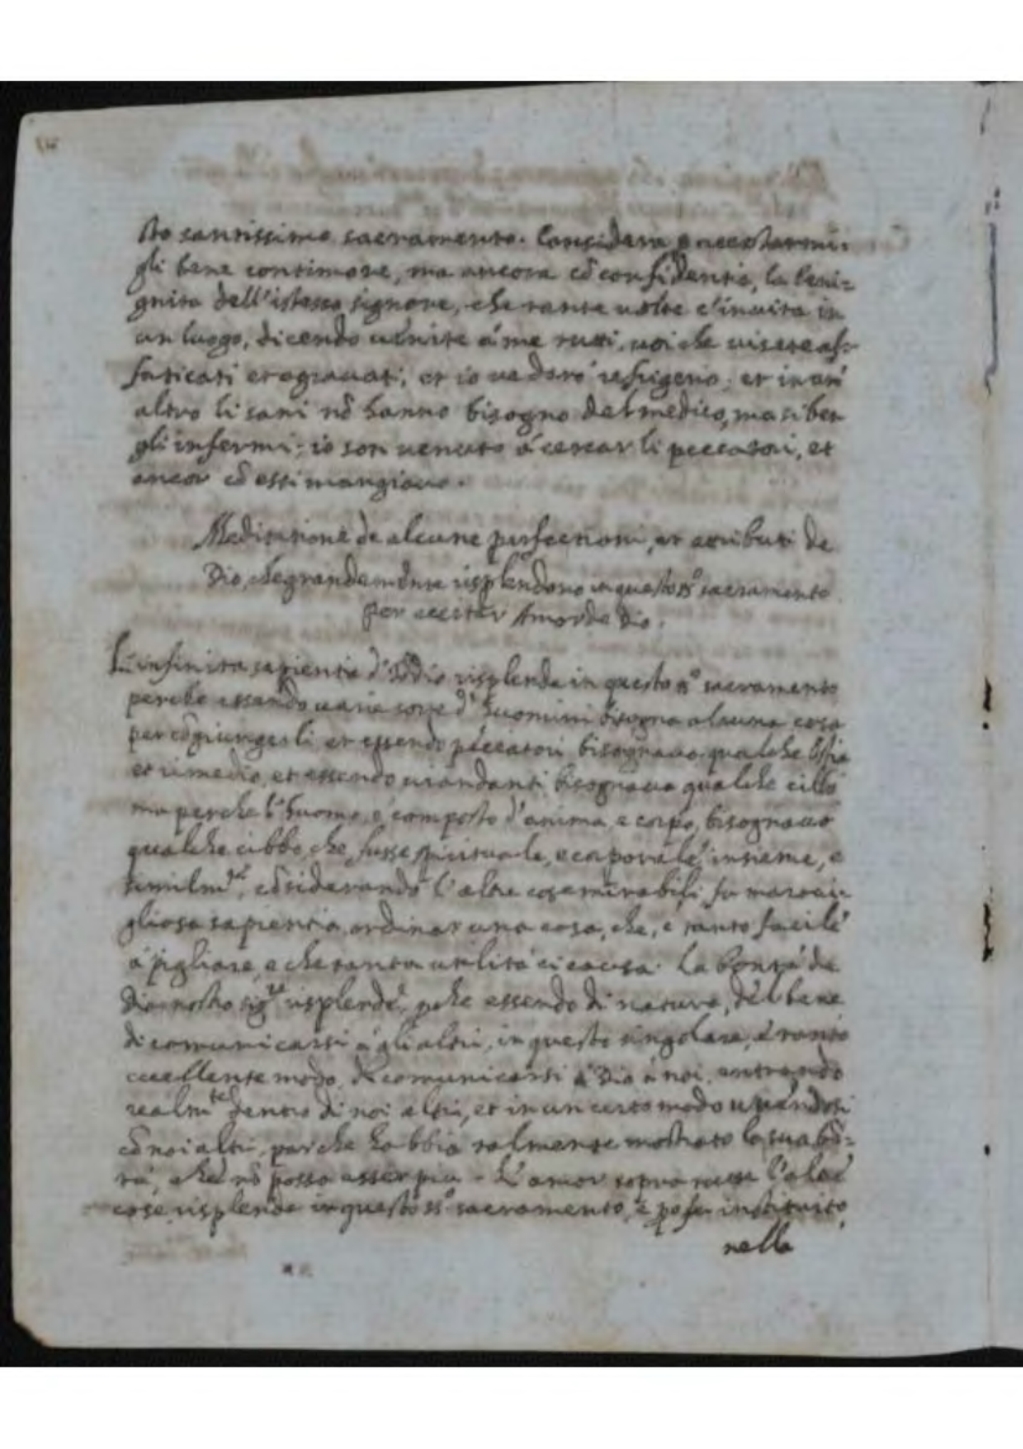 sto santissimo sacramento. Considera p accostarmi-
gli bene continuare, ma ancora cõ confidentia, la beni-
gnita dell'istesso signore, che tante uolte c'inuita in
un luogo, dicendo uenite á me tutti, uoi che ui sete af-
faticati et agrauati, et io ue daró refrigerio, et in un'
altro li sani nõ hanno bisogno del medico, ma si ben
gl'infermi; io son uenuto á cercar li peccatori, et
ancor cõ essi mangiaua.
Meditatione de alcune perfectioni, et attributi de
Dio, che grandemente risplendono in questo ss.º sacramento
per eccitar Amor de Dio.
L'infinita sapientia d'Iddio risplende in questo ss.º sacramento
perche essendo uarie sorte d'huomini bisogna alcuna cosa
per cõgiungerli et essendo peccatori bisognaua qualche
et rimedio, et essendo uiandanti bisognaua qualche cibbo
ma perche l'huomo é composto d'anima e corpo, bisognaua
qualche cibbo, che fusse spirituale, e corporale insieme, e
similmte, cõsiderando l'altre cose mirabili, fu marauì-
gliosa sapientia ordinar una cosa, che, é tanto facile
á pigliare, e che tanta utilitá ci causa. La bontá de
Dio nostro sigre risplende, pche essendo di natura del bene
di comunicarsi á gli altri, in questo singolare, é tanto
eccellente modo, de comunicarsi Dio á noi, entrando
realmte dentro di noi altri, et in un certo modo unendosi
cõ noi altri, par che habbia talmente mostrato la sua bõ-
tá, che nõ possa esser piu. L'amor sopra tutte l'altre
cose risplende in questo ss.º sacramento, é po fu instituito,
nella